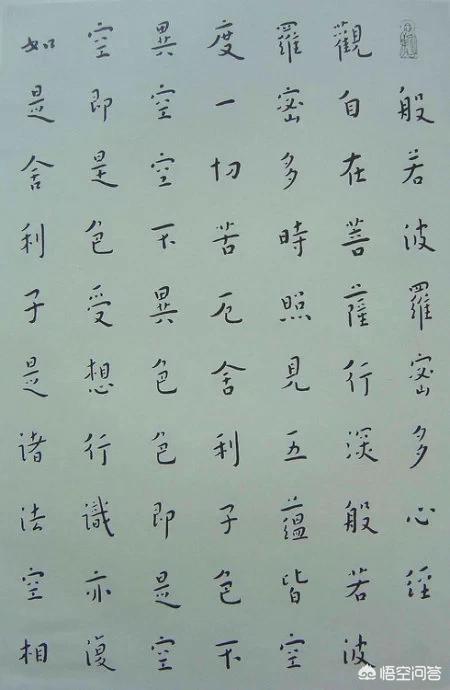 般若波羅密多心經
觀自在菩薩行深般若波
羅密多時照見五蘊皆空
度一切苦厄舍利子色不
異空空不異色色即是空
空即是色受想行識亦復
如是舍利子是諸法空相
悟空问答